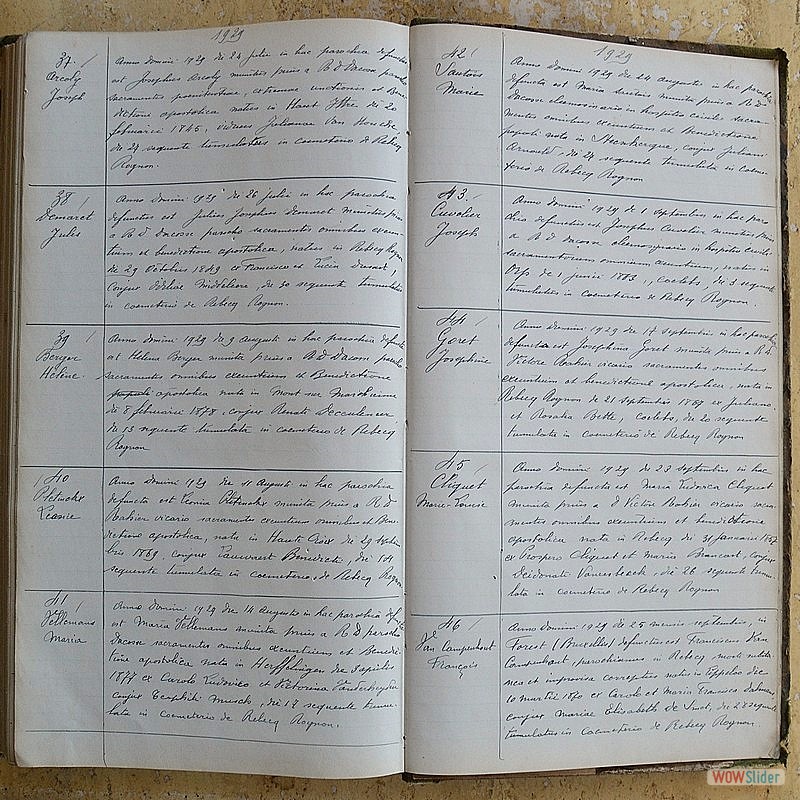 1929
37.
Arcoly
Joseph
Anno Domini 1929 die 24 julii in hac parochia defunctus
est Josephus Arcoly munitus prius a R D Dacosse parocho
sacramentis poenitentiae, extremae unctionis et Bene
dictione apostolica natus in Haut Ittre die 20
februarii 1845, viduus Julianae Van
die 27 sequente tumulatus in coemeterio de Rebecq
Rognon.
38
Demaret
Jules
Anno Domini 1929 die 26 julii in hac parochia
defunctus est Julius Josephus Demaret munitus prius
a R D Dacosse parocho sacramentis omnibus exeun
tium et benedictione apostolica, natus in Rebecq Rognon
die 29 Octobris 1849 ex Francisco et Lucia
conjux Odeliae die 30 sequente tumulatus
in coemeterio de Rebecq Rognon.
39
Berger
Hélène
Anno Domini 1929 die 9 Augusti in hac parochia defuncta
est Helena Berger munita prius a R D Dacosse parocho
sacramentis omnibus exeuntium et Benedictione
apostolica nata in Mont sur Marchienne
die 8 februarii 1878, conjux Renati
die 13 sequente tumulata in coemeterio de Rebecq
Rognon
40
Léonie
Anno Domini 1929 die 11 Augusti in hac parochia
defuncta est Leonia munita prius a R D
Bahier vicario sacramentis exeuntium omnibus et Bene
dictione apostolica, nata in Haute Croix die 29 septem
bris 1869, conjux Benedicti, die 14
sequente tumulata in coemeterio de Rebecq Rognon
41
Tellemans
Maria
Anno Domini 1929 die 14 Augusti in hac parochia defuncta
est Maria Tellemans munita prius a R D parocho
Dacosse sacramentis omnibus exeuntium et Benedic
tione apostolica nata in Herffelingen die
1877 ex Carolo Ludovico et Victorina
conjux Theophili die 17 sequente tumu
lata in coemeterio de Rebecq Rognon.
1929
42
Sautois
Marie
Anno Domini 1929 die 24 augusti in hac parochia
defuncta est Maria Sautois munita prius a R D
Dacosse eleemosinario in hospitio civili sacra
mentis omnibus exeuntium et Benedictione
papali nata in Steenkerque, conjux Juliani
Arnould, die 27 sequente tumulata in coeme
terio de Rebecq Rognon
43
Cuvelier
Joseph
Anno Domini 1929 die 1 septembris in hac paro
chia defunctus est Josephus Cuvelier munitus prius
a R D Dacosse eleemosynario in hospitio civili
sacramentorum omnium exeuntium, natus in
die 1 junii 1863, caelebs, die 3 sequente
tumulatus in coemeterio de Rebecq Rognon.
44
Goret
Joséphine
Anno Domini 1929 die 17 septembris in hac parochia
defuncta est Josephina Goret munita prius a R D
Victore Bahier vicario sacramentis omnibus
exeuntium et benedictione apostolica, nata in
Rebecq Rognon die 21 septembris 1867 ex Juliano
et Rosalia Bette, caelebs, die 20 sequente
tumulata in coemeterio de Rebecq Rognon
45
Cliquet
Marie-Louise
Anno Domini 1929 die 23 septembris in hac
parochia defuncta est Maria Ludovica Cliquet
munita prius a D Victore Bahier vicario sacra
mentis omnibus exeuntium et benedictione
apostolica nata in Rebecq die 31 januarii 1857
ex Prospero Cliquet et Maria Brancart, conjux
Deodonati die 26 sequente tumu
lata in coemeterio de Rebecq Rognon
46
Van Campenhout
François
Anno Domini 1929 die 25 mensis septembris, in
Forest (Bruxelles) defunctus est Franciscus Van
Campenhout, parochianus in Rebecq morte subita
nea et improvisa correptus natus in Eppeloo die
10 martii 1870 ex Carolo et Maria Francisca
conjux Mariae Elisabeth De Smet, die 28 sequente
tumulatus in coemeterio de Rebecq Rognon.
WOWSlider